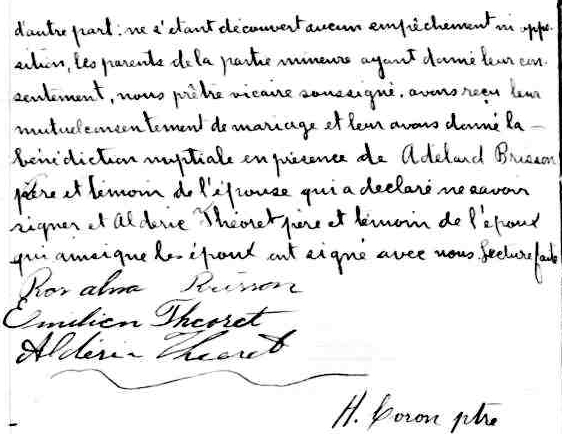 d'autre part: ne s'étant découvert aucun empêchement ni oppo-
sition, les parents de la partie mineure ayant donné leur con-
sentement, nous prêtre vicaire soussigné, avons reçu leur
mutuel consentement de mariage et leur avons donné la
bénédiction nuptiale en présence de Adélard Brisson
père et témoin de l'épouse qui a déclaré ne savoir
signer et Aldéric Théoret père et témoin de l'époux
qui ainsi que les époux ont signé avec nous. Lecture faite
Rosalma Brisson
Emilien Theoret
Aldéric Theoret
H. Coron ptre